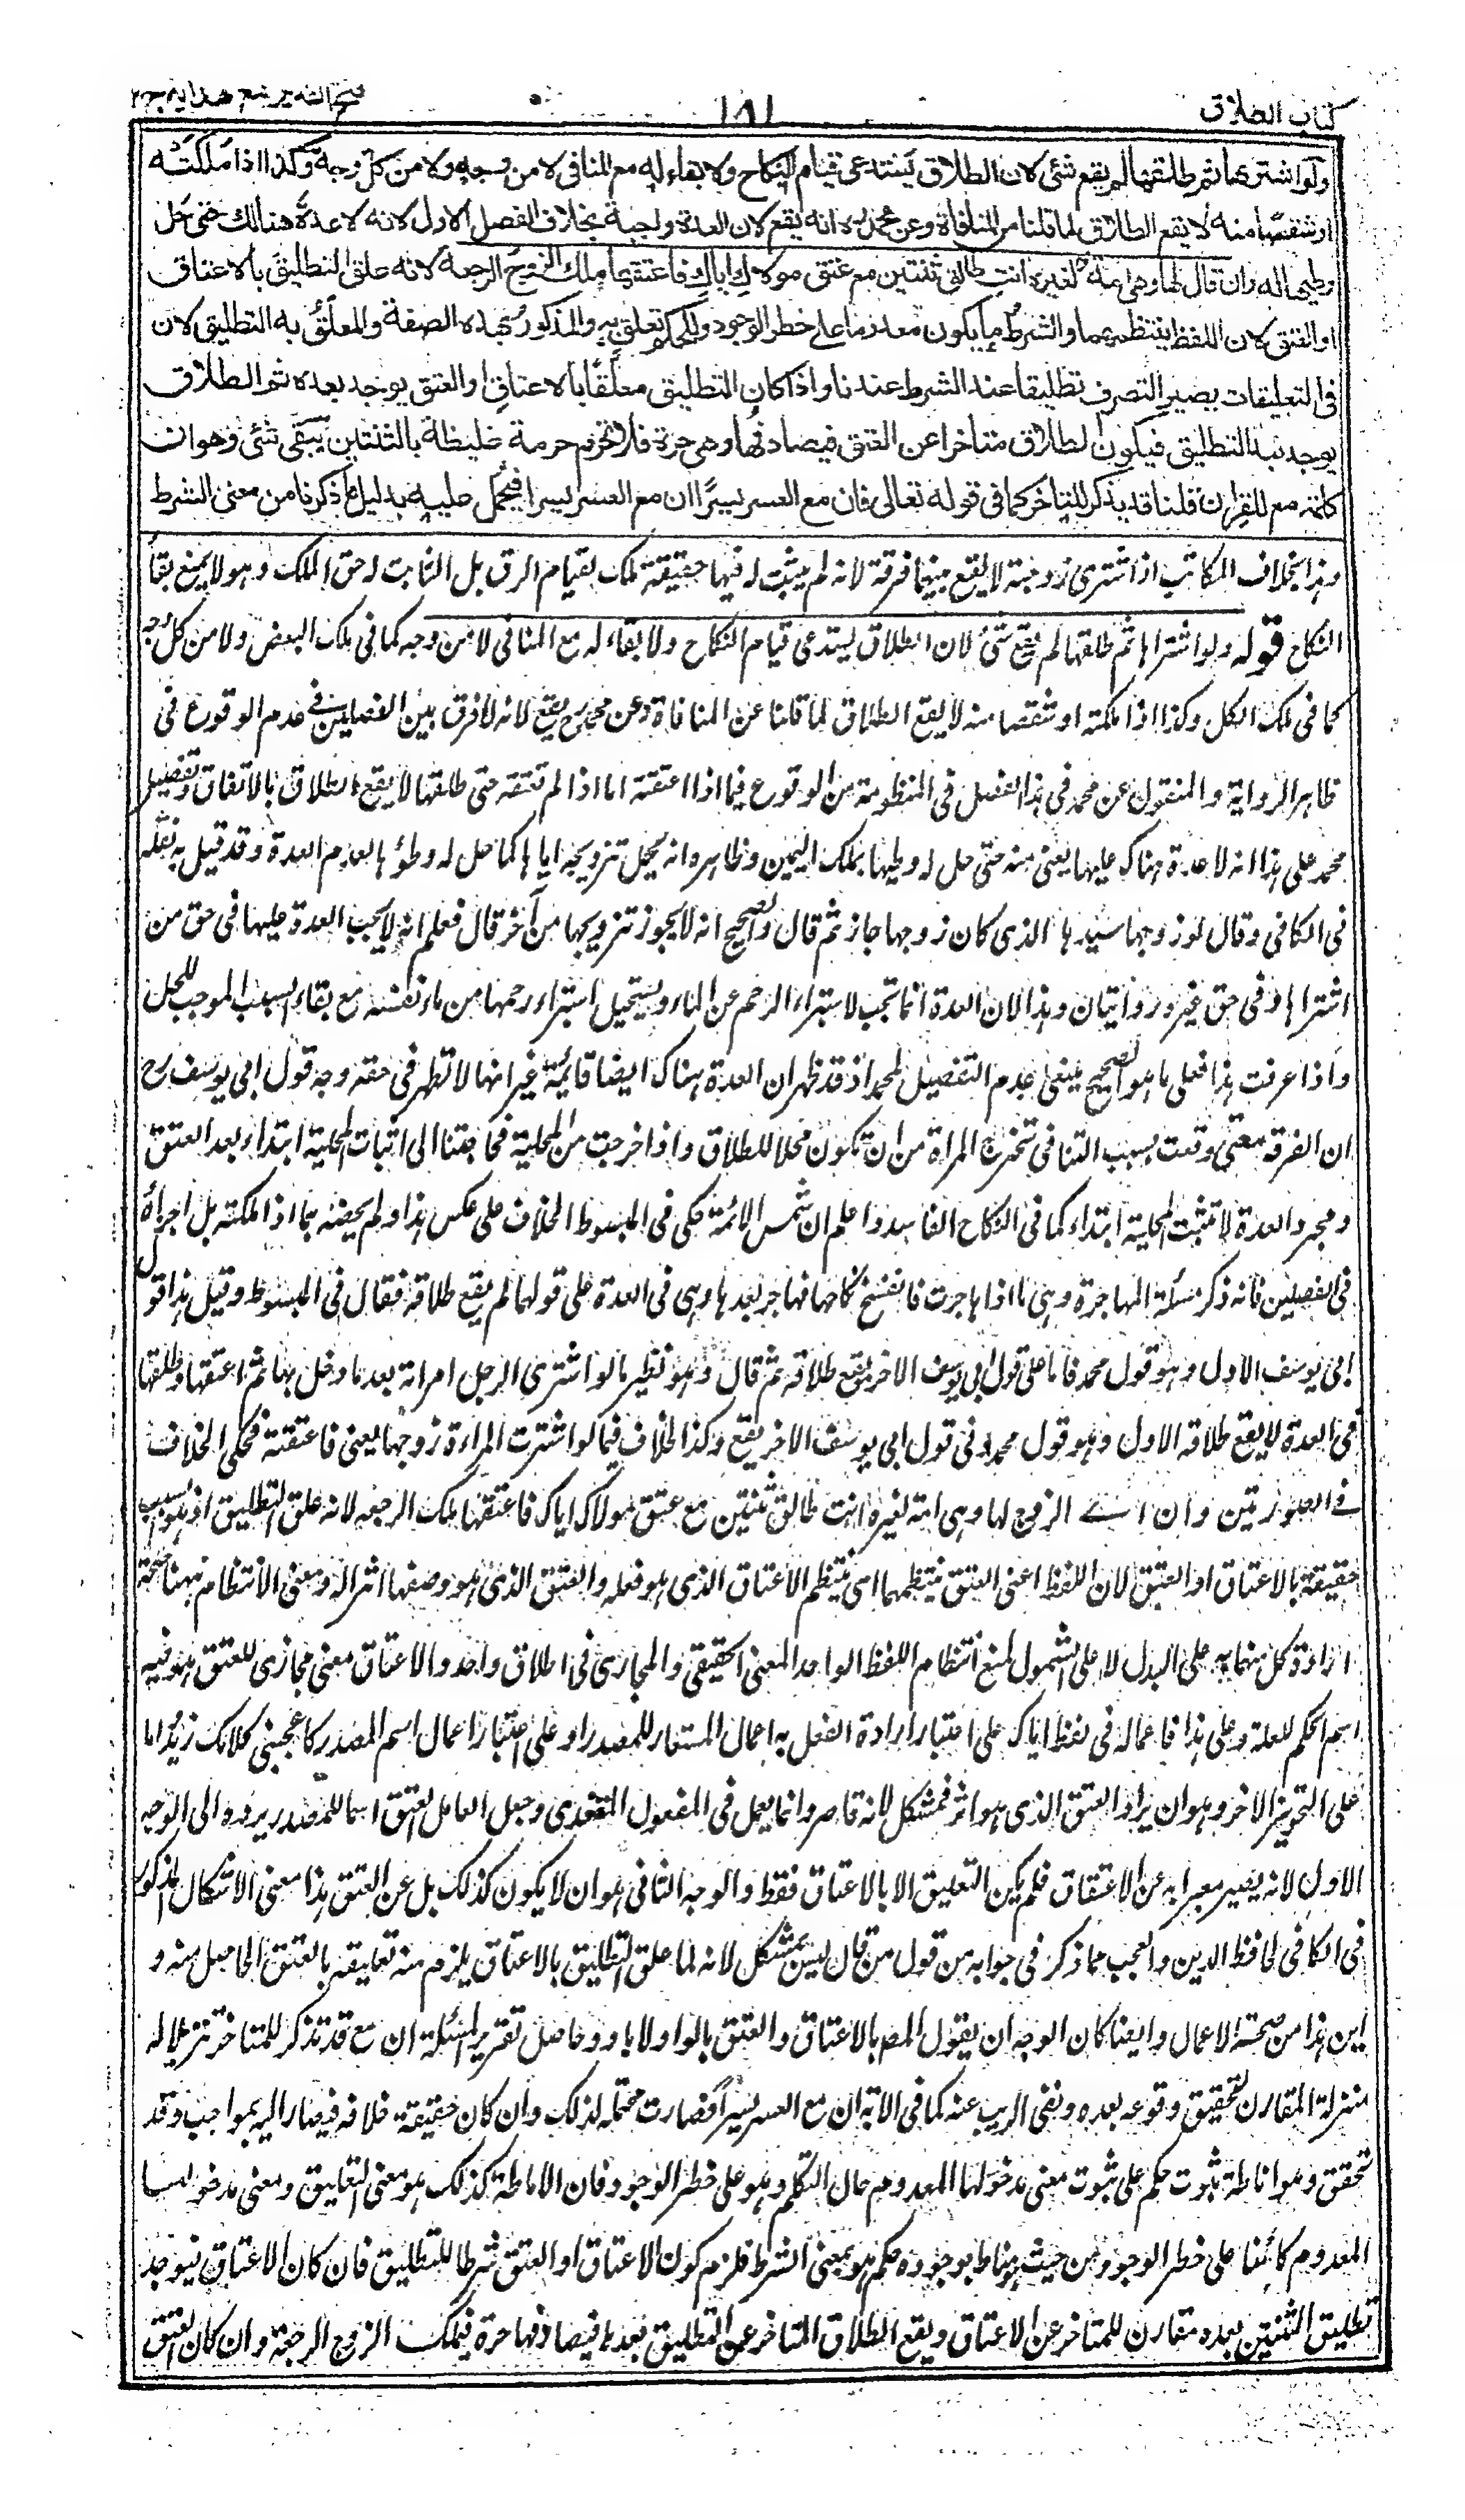 كتاب الطلاق
١٨١
فتح القدير مع هدايه ج ٢
ولو اشتراها ثم طلقها لم يقع شئ لان الطلاق يستدعى قيام النكاح ولا بقاء له مع المنافى لا من وجه ولا من كل وجه وكذا اذا ملكته
او شقصا منه لا يقع الطلاق لما قلنا من المنافاة وعن محمد ره انه يقع لان العدة واجبة بخلاف الفصل الاول لانه لا عدة هنالك حتى حل
وطيها له وان قال لها وهى امة لغيره انت طالق ثنتين مع عتق مولاك اياك فاعتقها ملك الزوج الرجعة لانه علق التطليق بالاعتاق
او العتق لان اللفظ ينتظمهما والشرط ما يكون معدوما على خطر الوجود وللحكم تعلق به والمذكور بهذه الصفة والمعلق به التطليق لان
فى التعليقات يصير التصرف تطليقا عند الشرط عندنا واذا كان التطليق معلقا بالاعتاق او العتق يوجد بعده ثم الطلاق
يوجد بعد التطليق فيكون الطلاق متاخرا عن العتق فيصادفها وهى حرة فلا تحرم حرمة غليظة بالثنتين يبقى شئ وهو ان
كلمة مع للقران قلنا قد يذكر للتاخر كما فى قوله تعالى فان مع العسر يسرا ان مع العسر يسرا فيحمل عليه بدليل ما ذكرنا من معنى الشرط
وهذا بخلاف المكاتب اذا اشترى زوجته لا يقع بينهما فرقة لانه لم يثبت له فيها حقيقة ملك لقيام الرق بل الثابت له حق الملك وهو لا يمنع بقاء
النكاح قوله ولو اشتراها ثم طلقها لم يقع شئ لان الطلاق يستدعى قيام النكاح ولا بقاء له مع المنافى لا من وجه كما فى ملك البعض ولا من كل وجه
كما فى ملك الكل وكذا اذا ملكته او شقصا منه لا يقع الطلاق لما قلنا من المنافاة وعن محمد رح يقع لانه لا فرق بين الفصلين فى عدم الوقوع فى
ظاهر الرواية والمنقول عن محمد فى هذا الفصل فى المنظومة من الوقوع فيما اذا اعتقته اما اذا لم تعتقه حتى طلقها لا يقع الطلاق بالاتفاق وتفصيل
محمد على هذا انه لا عدة هناك عليها يعنى منه حتى حل له وطيها بملك اليمين وظاهره انه يحل تزويجه اياها كما حل له وطؤها لعدم العدة وقد قيل به نقله
فى الكافى وقال لو زوجها سيدها الذى كان زوجها جاز ثم قال والصحيح انه لا يجوز تزويجها من آخر قال فعلم انه لا يجب العدة عليها فى حق من
اشتراها وفى حق غيره روايتان وهذا لان العدة انما تجب لاستبراء الرحم عن الماء ويستحيل استبراء رحمها من ماء نفسه مع بقاء السبب الموجب للحل
واذا عرفت هذا فعلى ما هو الصحيح ينبغى عدم التفصيل لمحمد اذ قد ظهر ان العدة هناك ايضا قائمة غير انها لا تظهر فى حقه وجه قول ابى يوسف رح
ان الفرقة متى وقعت بسبب التنافى تخرج المراة من ان تكون محلا للطلاق واذا خرجت من المحلية فحاجتنا الى اثبات المحلية ابتداء بعد العتق
ومجرد العدة لا تثبت المحلية ابتداء كما فى النكاح الفاسد واعلم ان شمس الائمة حكى فى المبسوط الخلاف على عكس هذا ولم يخصه بما اذا ملكته بل اجراه
فى الفصلين فانه ذكر مسئلة المهاجرة وهى ما اذا هاجرت فانفسخ نكاحها فهاجر بعدها وهى فى العدة على قولهما لم يقع طلاقه فقال فى المبسوط وقيل هذا قول
ابى يوسف الاول وهو قول محمد فاما على قول ابى يوسف الاخر يقع طلاقه ثم قال وهو نظير ما لو اشترى الرجل امراته بعد ما دخل بها ثم اعتقها وطلقها
فى العدة لا يقع طلاقه الاول وهو قول محمد وفى قول ابى يوسف الاخر يقع وكذا الخلاف فيما لو اشترت المراة زوجها يعنى فاعتقته فحكى الخلاف
فى الصورتين وان اے الزوج لها وهى امة لغيره انت طالق ثنتين مع عتق مولاك اياك فاعتقها ملك الرجعة لانه علق التطليق اذ هو السبب
حقيقة بالاعتاق او العتق لان اللفظ اعنى العتق ينتظمهما اى ينتظم الاعتاق الذى هو فعله والعتق الذى هو وصفها اثر له ومعنى الانتظام ههنا صحة
ارادة كل منهما به على البدل لا على الشمول لمنع انتظام اللفظ الواحد المعنى الحقيقى والمجازى فى اطلاق واحد والاعتاق معنى مجازى للعتق هو فيه
اسم الحكم للعلة وعلى هذا فاعماله فى لفظ اياك على اعتبار ارادة الفعل به اعمال المستعار للمصدر او على اعتبار اعمال اسم المصدر كاعجبنى كلامك زيدا اما
على التجويز الاخر وهو ان يراد العتق الذى هو اثر فمشكل لانه قاصر وانما يعمل فى المفعول المتعدى وجعل العامل لعتق اسما للمصدر يرده الى الوجه
الاول لانه يصير معبرا به عن الاعتاق فلم يكن التعليق الا بالاعتاق فقط والوجه الثانى هو ان لا يكون كذلك بل عن العتق هذا معنى الاشكال المذكور
فى الكافى لحافظ الدين والعجب مما ذكر فى جوابه من قول من قال ليس بمشكل لانه لما علق التطليق بالاعتاق يلزم منه تعليقه بالعتق الحاصل منه و
اين هذا من صحة الاعمال وايضا كان الوجه ان يقول المص بالاعتاق والعتق بالواو لا باو وحاصل تقرير المسئلة ان مع قد تذكر للمتاخر تنزيلا له
منزلة المقارن لتحقيق وقوعه بعده ونفى الريب عنه كما فى الاية ان مع العسر يسرا فصارت محتملة لذلك وان كان حقيقة خلافه فيصار اليه بموجب وقد
تحقق وهو اناطة ثبوت حكم على ثبوت معنى مدخولها المعدوم حال التكلم وهو على خطر الوجود فان الاناطة كذلك هو معنى التعليق ومعنى مدخولها
المعدوم كائنا على خطر الوجود من حيث يناط بوجوده حكم هو بمعنى الشرط فلزم كون الاعتاق او العتق شرطا للتطليق فان كان الاعتاق فيوجد
تطليق الثنتين بعده مقارن للمتاخر عن الاعتاق ويقع الطلاق المتاخر عن التطليق بعدها فيصادفها حرة فيملك الزوج الرجعة وان كان العتق